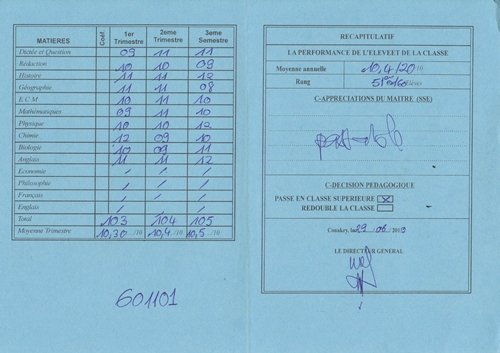 MATIERES Coéf. 1er Trimestre 2eme Trimestre 3eme Semestre
Dictée et Question 09 11 11
Rédaction 10 10 09
Histoire 11 11 12
Géographie 11 11 08
E.C.M 10 11 10
Mathématiques 09 11 10
Physique 10 10 12
Chimie 12 09 10
Biologie 10 09 11
Anglais 11 11 12
Economie / / /
Philosophie / / /
Français / / /
Englais / / /
Total 103 104 105
Moyenne Trimestre 10,30 /10 10,4 /10 10,5 /10
601101
RECAPITULATIF
LA PERFORMANCE DE L'ELEVEET DE LA CLASSE
Moyenne annuelle 10,4/20 /10
Rang élèves
C-APPRECIATIONS DU MAITRE (NSE)
C-DECISION PEDAGOGIQUE
PASSE EN CLASSE SUPERIEURE X
REDOUBLE LA CLASSE
Conakry, le 29 /06 /2010
LE DIRECTEUR GENERAL